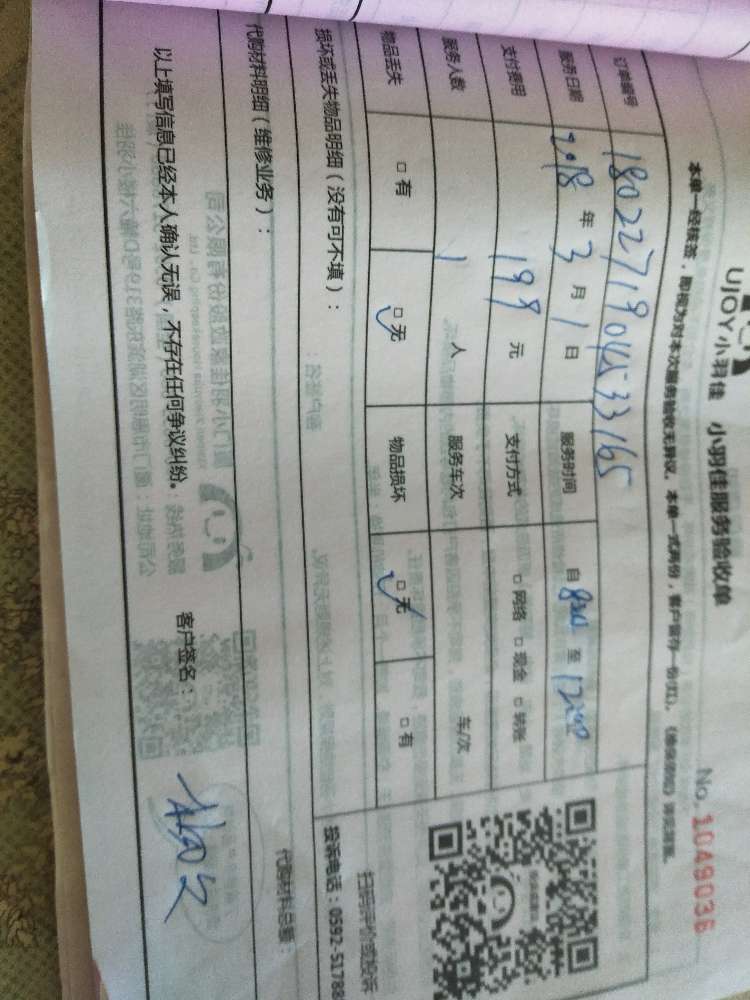 UJOY小羽佳 小羽佳服务验收单
No. 1049036
本单一经核签，即视为对本次服务验收无异议。本单一式两份，客户留存一份(红)。
订单编号 18022719045533165
服务日期 2018 年 3 月 1 日 服务时间 自 至
支付费用 199 元 支付方式 □ 网络 □ 现金 □ 转账
服务人数 1 人 服务车次 车/次
物品丢失 □ 有 □ 无 物品损坏 □ 无 □ 有
扫码评价或投诉
投诉电话：0592-51788
损坏或丢失物品明细（没有可不填）：
代购材料明细（维修业务）：
代购材料总额：
以上填写信息已经本人确认无误，不存在任何争议纠纷。 客户签名：